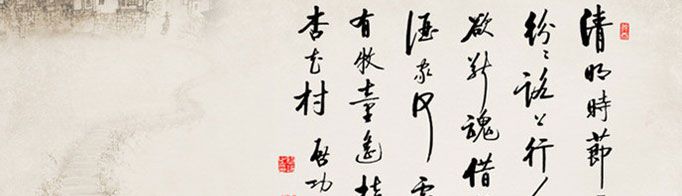 清明時節
紛〻路上行人
欲斷魂借
酒家何處
有牧童遙指
杏花村
啓功